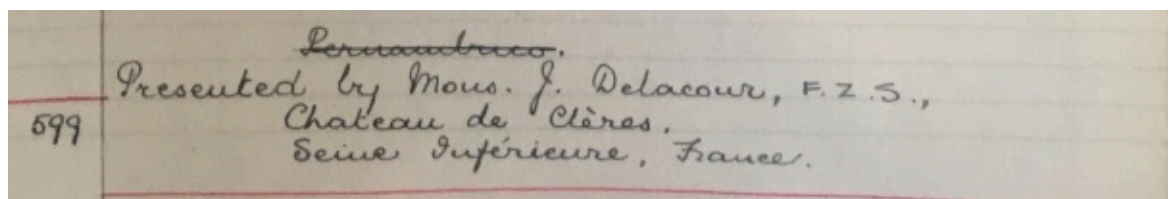 Pernambuco.
Presented by Mons. J. Delacour, F.Z.S.,
599 Chateau de Clères.
Seine Inférieure, France.